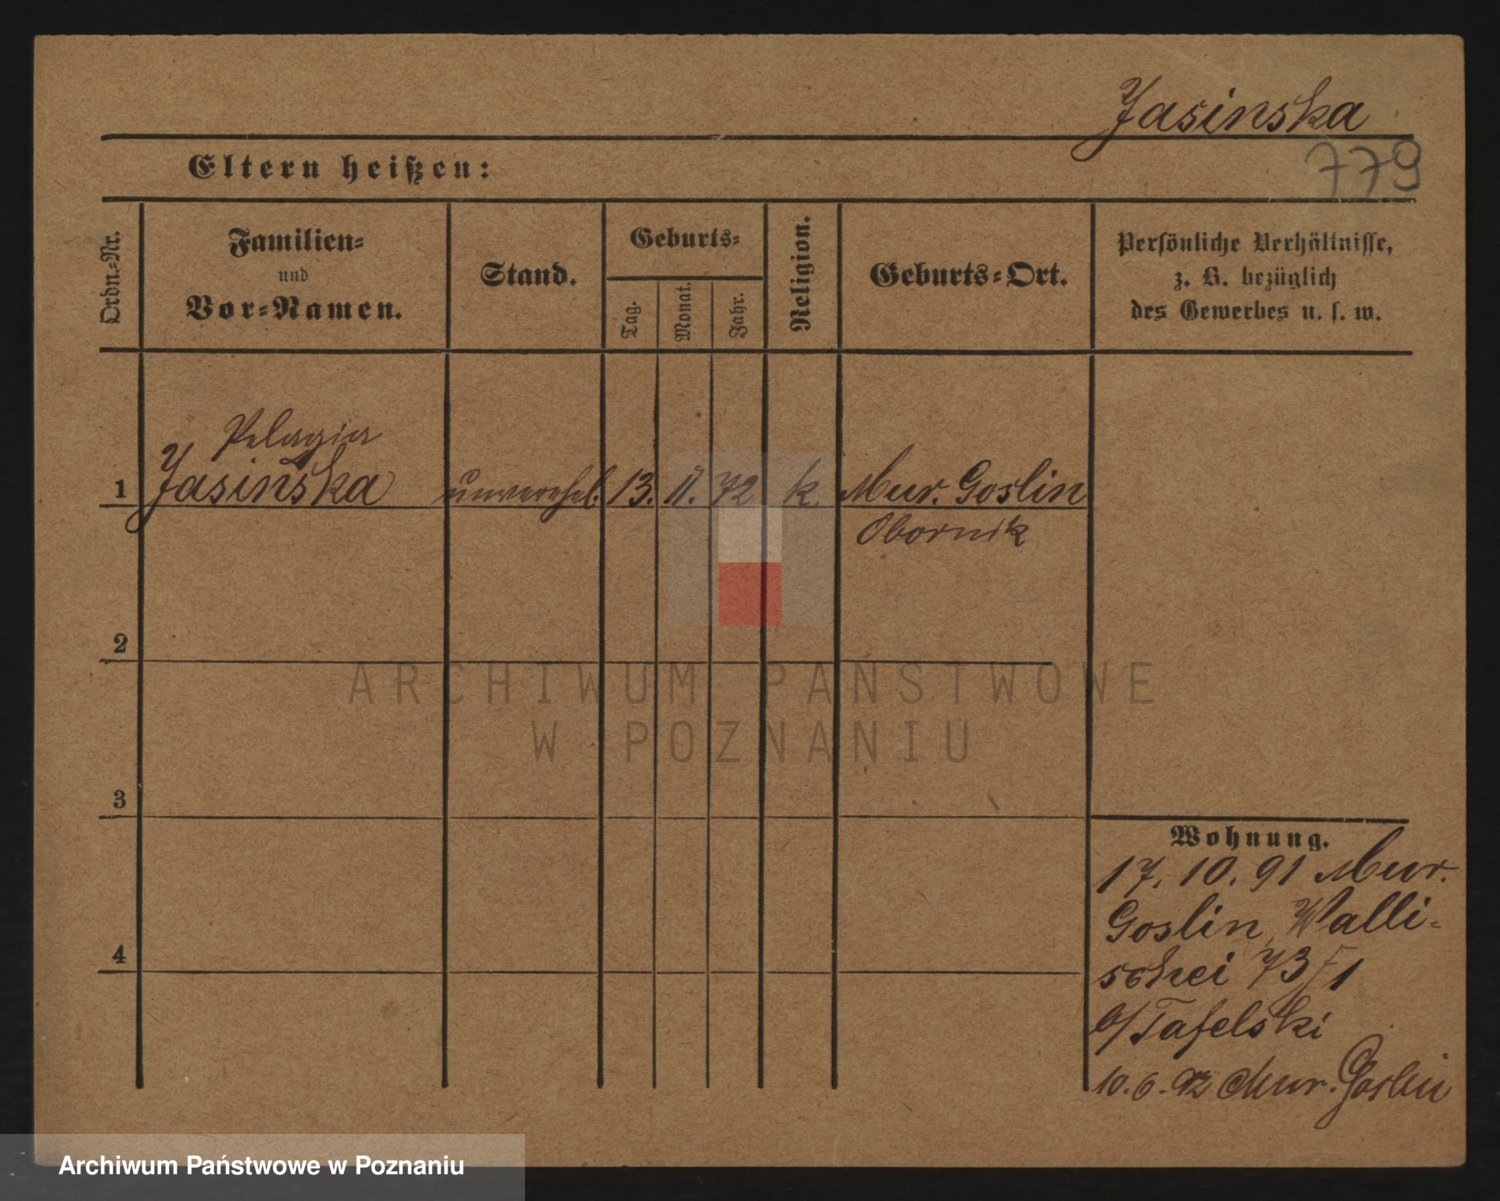 Jasinska
779
Eltern heißen:
Ordn.-Nr.
Familien-
und
Vor-Namen.
Stand.
Geburts-
Tag.
Monat.
Jahr.
Religion.
Geburts-Ort.
Persönliche Verhältnisse,
z. B. bezüglich
des Gewerbes u. s. w.
Pelagia
1 Jasinska unverehel. 13. 11. 72 k. Mur. Goslin
Obornik
2
3
4
Wohnung.
17. 10. 91 Mur.
Goslin, Walli-
schei 73 1
b/Tafelski
10. 6. 92 Mur. Goslin
ARCHIWUM PAŃSTWOWE
W POZNANIU
Archiwum Państwowe w Poznaniu